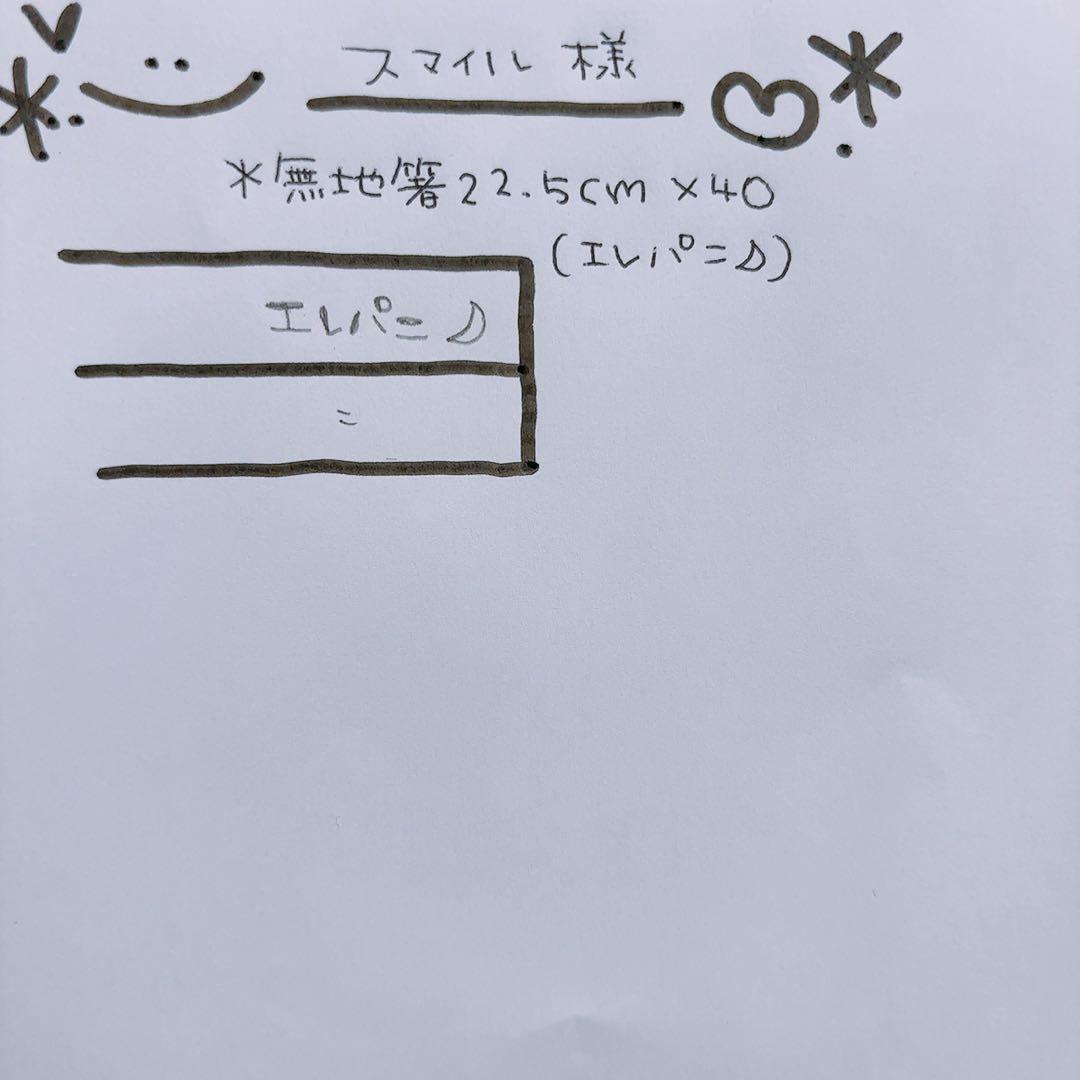 スマイル 様
*無地箸22.5cm×40
(エレパニ♪)
エレパニ♪
=